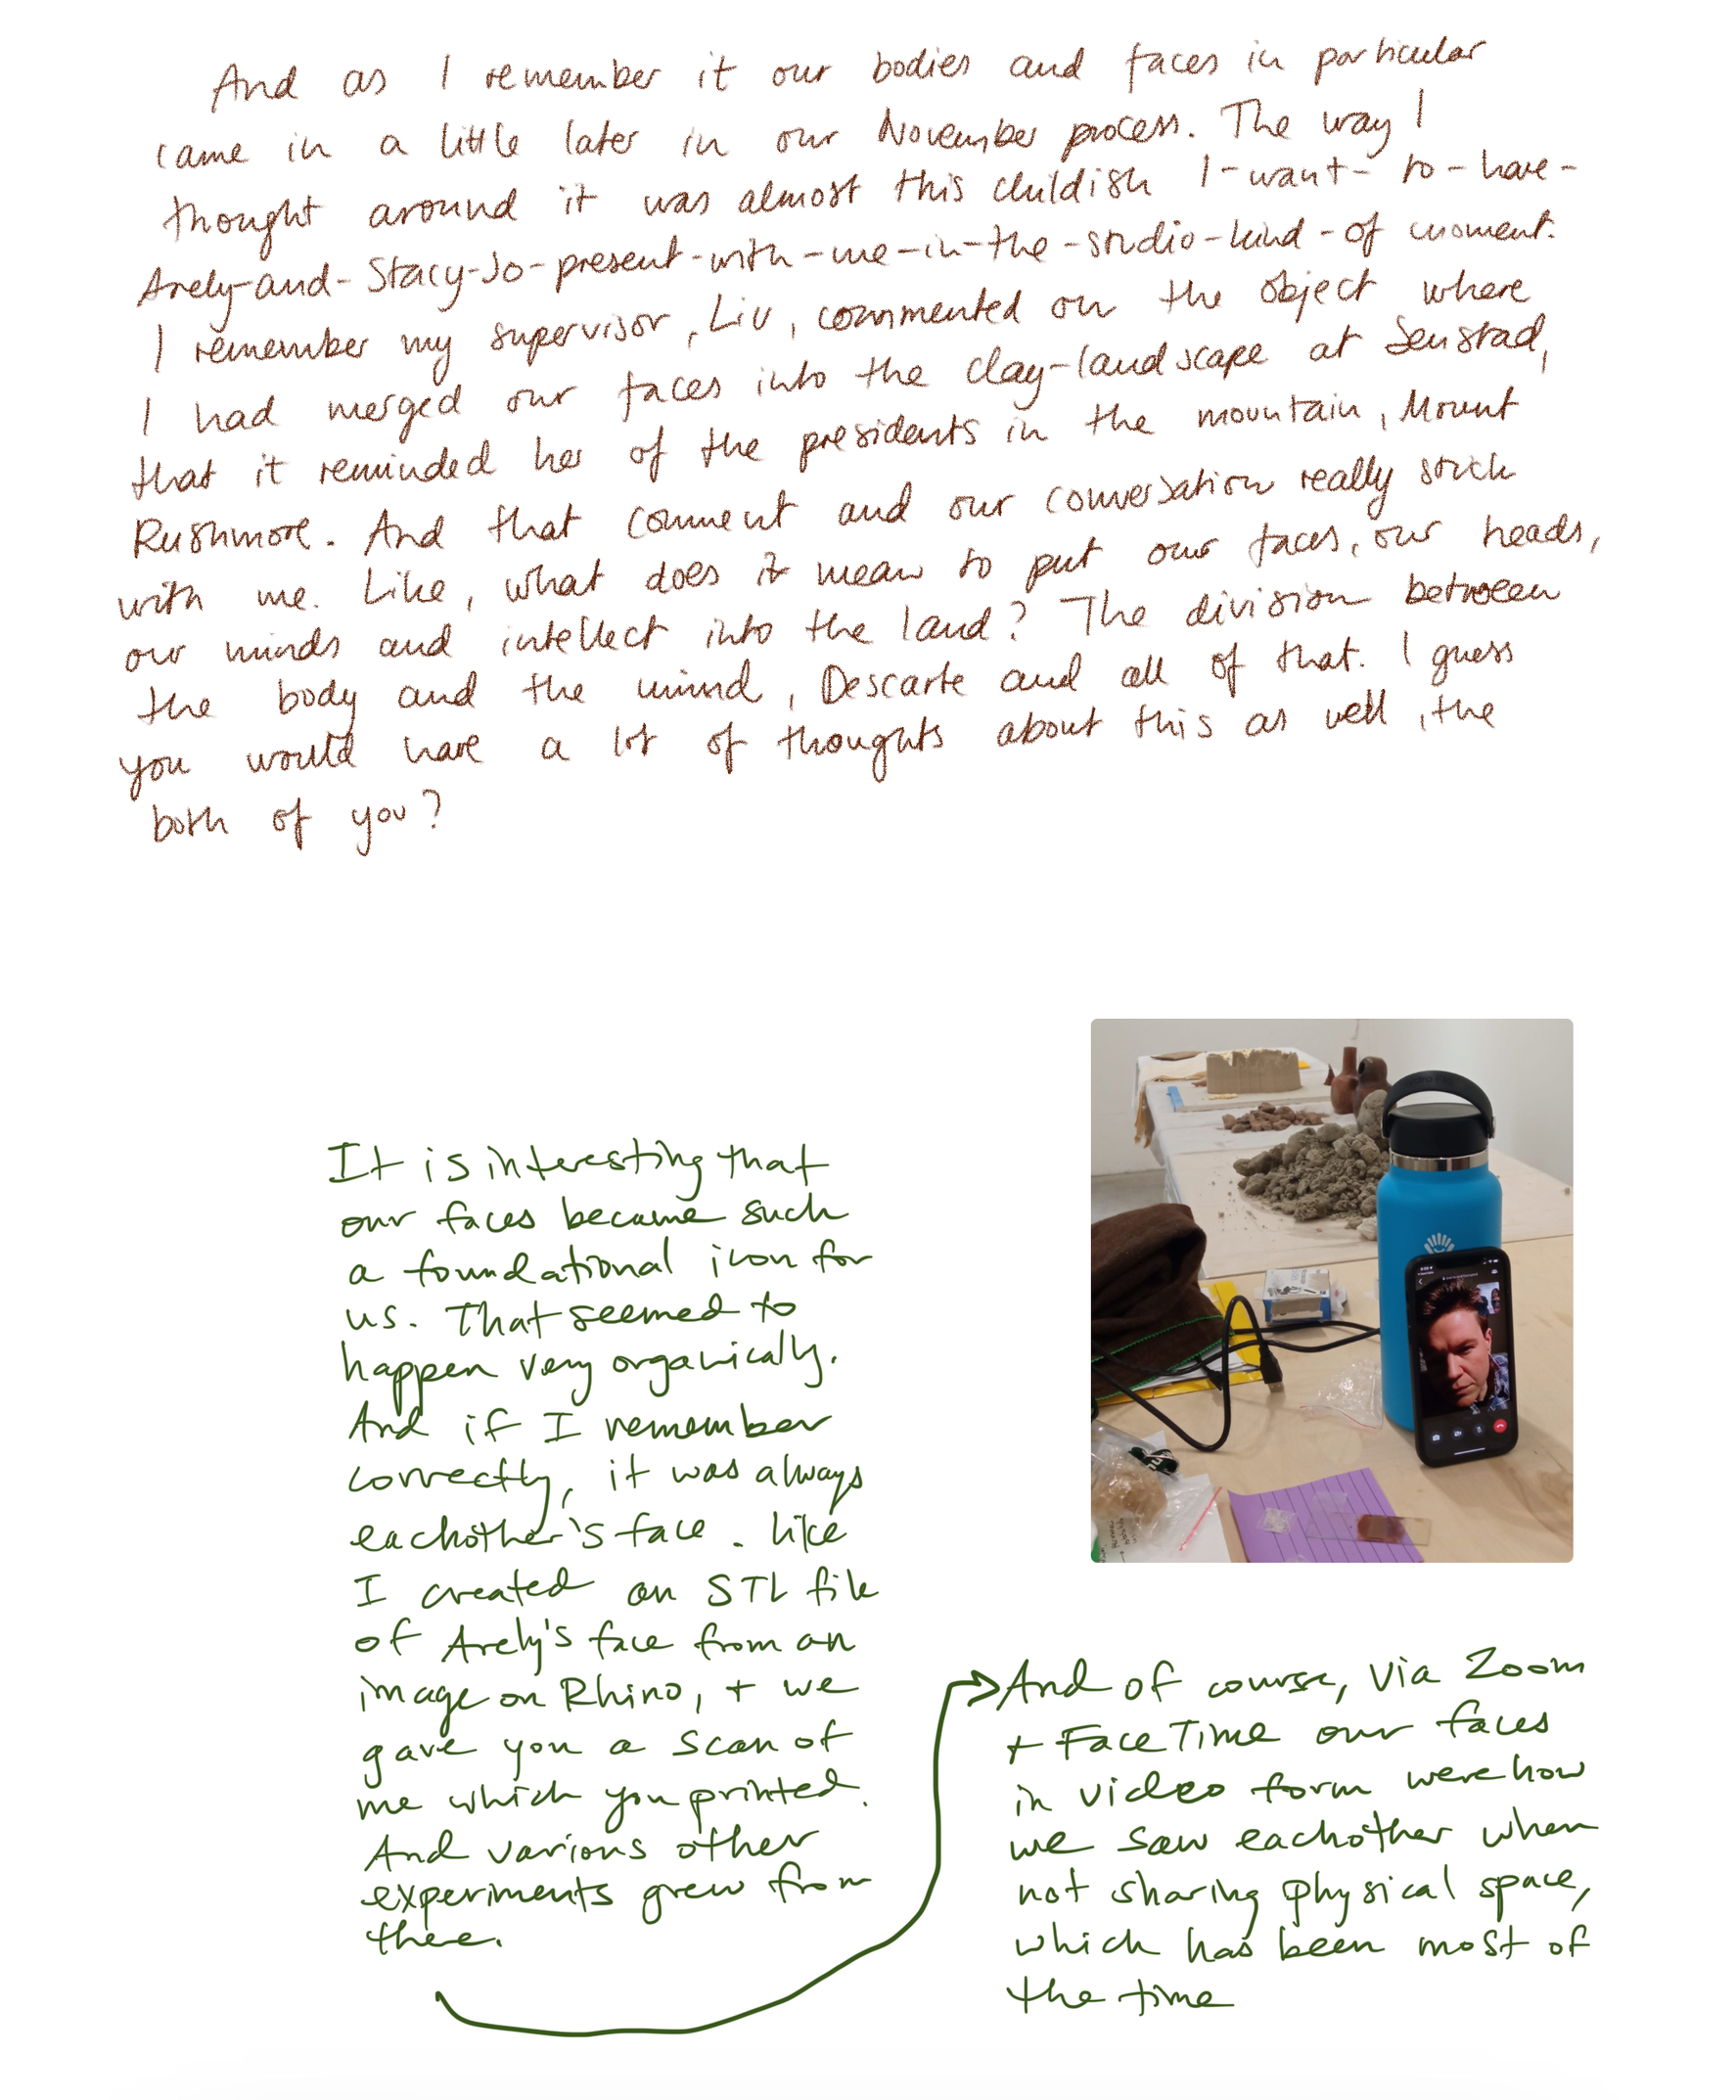 And as I remember it our bodies and faces in particular
came in a little later in our November process. The way I
thought around it was almost this childish I-want-to-have-
Arely-and-Stacy-Jo-present-with-me-in-the-studio-kind-of moment.
I remember my supervisor, Liv, commented on the object where
I had merged our faces into the clay-landscape at Senstad,
that it reminded her of the presidents in the mountain, Mount
Rushmore. And that comment and our conversation really stick
with me. Like, what does it mean to put our faces, our heads,
our minds and intellect into the land? The division between
the body and the mind, Descarte and all of that. I guess
you would have a lot of thoughts about this as well, the
both of you?
It is interesting that
our faces became such
a foundational icon for
us. That seemed to
happen very organically.
And if I remember
correctly, it was always
eachother's face. like
I created an STL file
of Arely's face from an
image on Rhino, + we
gave you a scan of
me which you printed.
And various other
experiments grew from
there.
And of course, via Zoom
+ FaceTime our faces
in video form were how
we saw eachother when
not sharing physical space,
which has been most of
the time